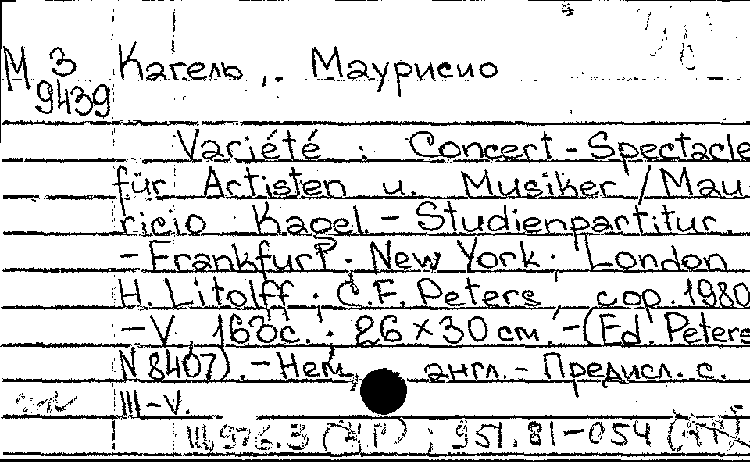 М 3 Кагель, Маурисио
9439
Variété : Concert-Spectacle
für Artisten u. Musiker / Mau
ricio Kagel. - Studienpartitur.
- Frankfurt; New York; London
H. Litolff; C.F. Peters, cop. 1980
- V, 163с.; 26×30см. - (Ed. Peters
N 8407). - Нем., англ. - Предисл. с.
III-V.
976.3 (4Г) ; 951.81-054